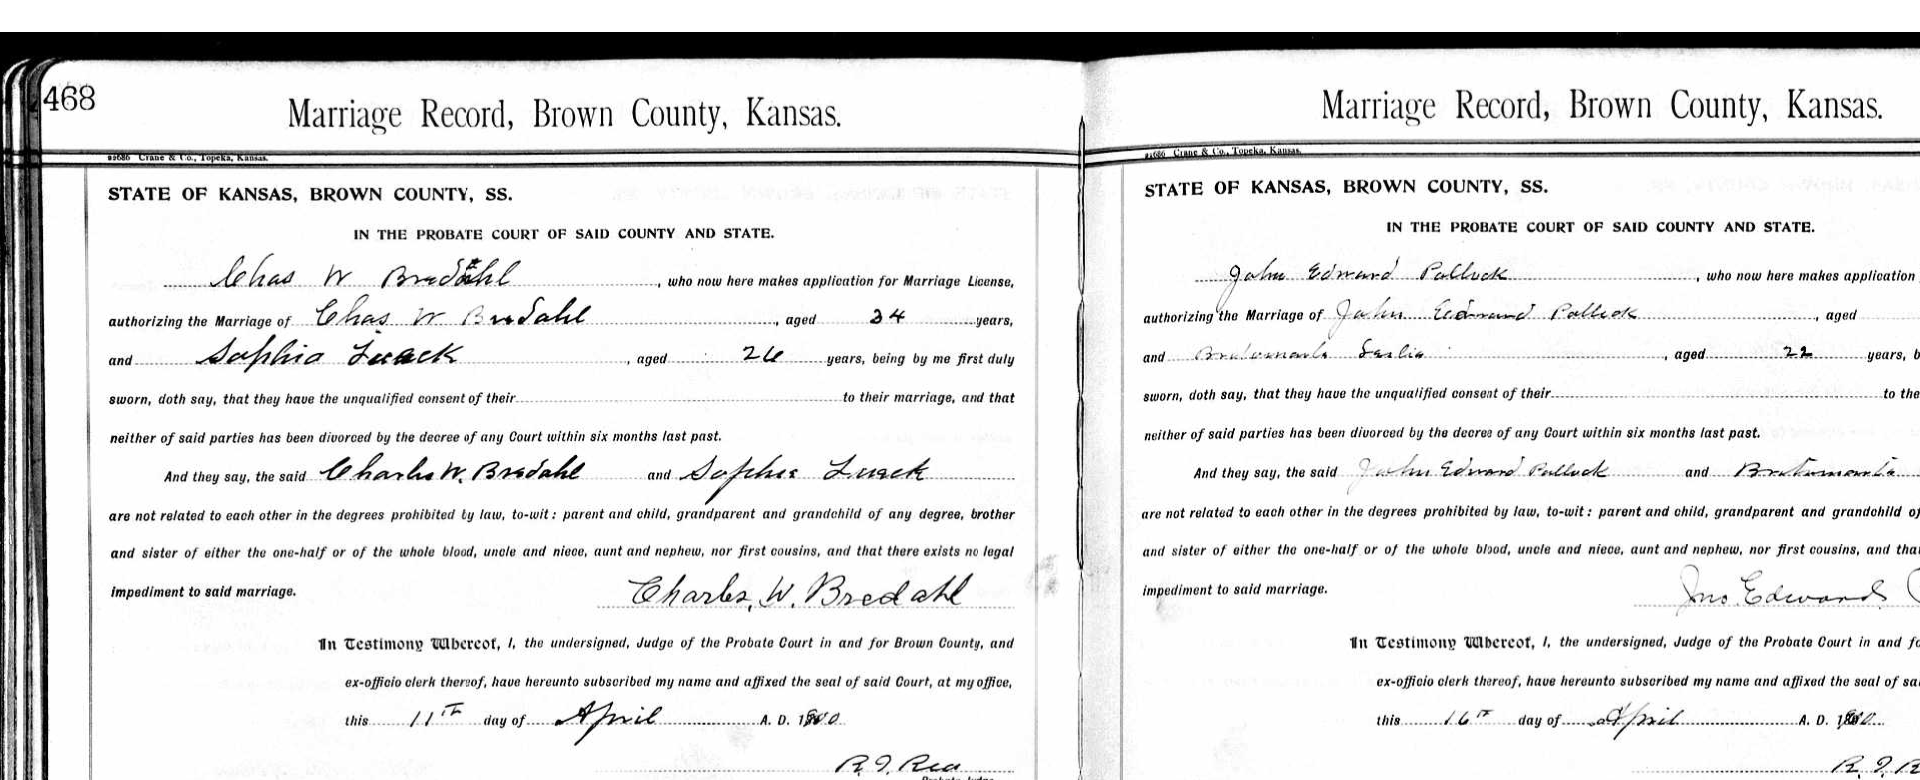 468
Marriage Record, Brown County, Kansas.
Crane & Co., Topeka, Kansas.
STATE OF KANSAS, BROWN COUNTY, SS.
IN THE PROBATE COURT OF SAID COUNTY AND STATE.
Chas W Bredahl, who now here makes application for Marriage License,
authorizing the Marriage of Chas W Bredahl, aged 34 years,
and Sophia Lueck, aged 26 years, being by me first duly
sworn, doth say, that they have the unqualified consent of their to their marriage, and that
neither of said parties has been divorced by the decree of any Court within six months last past.
And they say, the said Charles W. Bredahl and Sophia Lueck
are not related to each other in the degrees prohibited by law, to-wit: parent and child, grandparent and grandchild of any degree, brother
and sister of either the one-half or of the whole blood, uncle and niece, aunt and nephew, nor first cousins, and that there exists no legal
impediment to said marriage.
Charles, W. Bredahl
In Testimony Whereof, I, the undersigned, Judge of the Probate Court in and for Brown County, and
ex-officio clerk thereof, have hereunto subscribed my name and affixed the seal of said Court, at my office,
this 11th day of April A. D. 1900
Marriage Record, Brown County, Kansas.
Crane & Co., Topeka, Kansas.
STATE OF KANSAS, BROWN COUNTY, SS.
IN THE PROBATE COURT OF SAID COUNTY AND STATE.
John Edward Pollock, who now here makes application
authorizing the Marriage of John Edward Pollock, aged
and Leslie, aged 22 years, b
sworn, doth say, that they have the unqualified consent of their to the
neither of said parties has been divorced by the decree of any Court within six months last past.
And they say, the said John Edward Pollock and
are not related to each other in the degrees prohibited by law, to-wit: parent and child, grandparent and grandchild of
and sister of either the one-half or of the whole blood, uncle and niece, aunt and nephew, nor first cousins, and tha
impediment to said marriage.
Jno. Edward
In Testimony Whereof, I, the undersigned, Judge of the Probate Court in and fo
ex-officio clerk thereof, have hereunto subscribed my name and affixed the seal of sa
this 16th day of April A. D. 1900